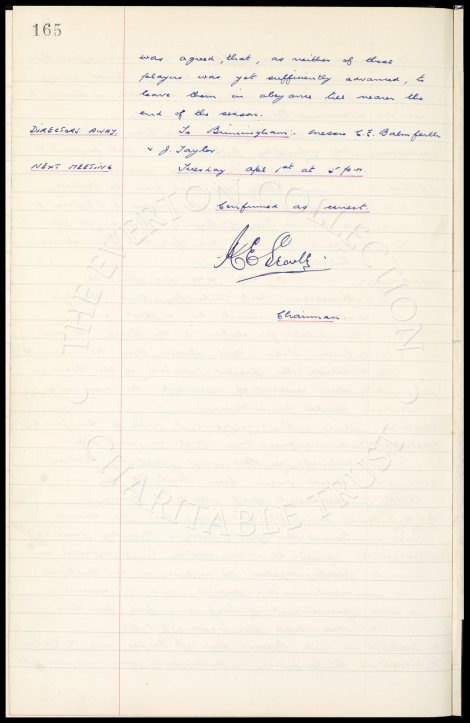 165
was agreed, that, as neither of these
players was yet sufficiently advanced, to
leave them in abeyance till nearer the
end of the season.
DIRECTORS AWAY. To Birmingham: Messrs C.E. Balmforth
& J. Taylor.
NEXT MEETING Tuesday Apl 1st at 5 p.m.
Confirmed as correct.
Chairman.
THE EVERTON COLLECTION
CHARITABLE TRUST